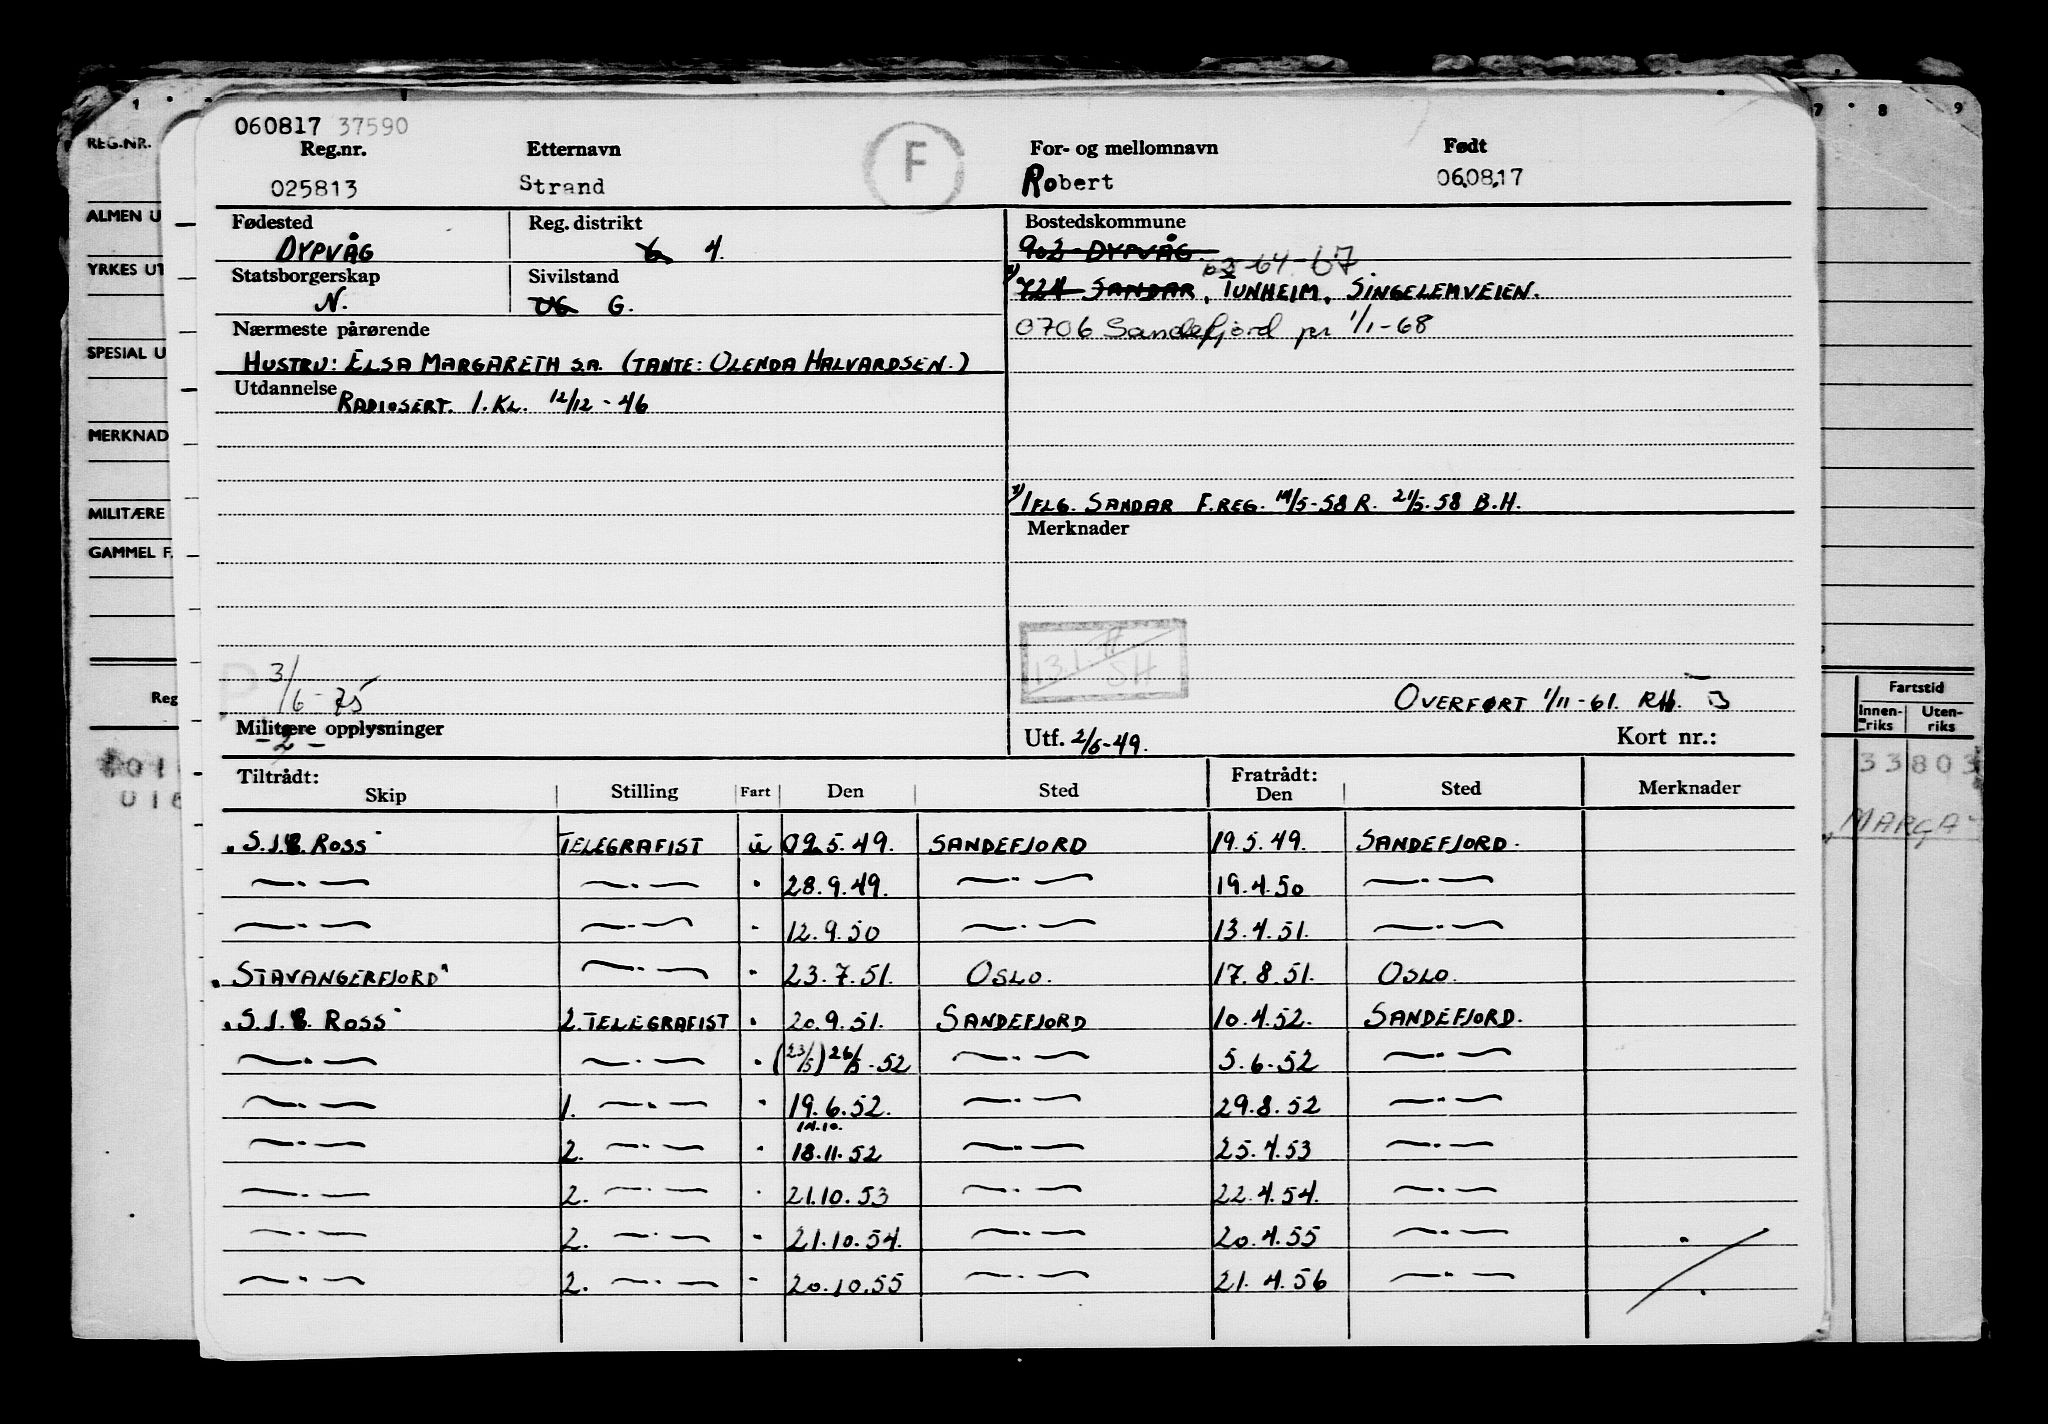 060817 37590
Reg.nr. Etternavn F For- og mellomnavn Født
025813 Strand Robert 06.08.17
Fødested Reg. distrikt Bostedskommune
DYPVÅG 6 4. 902 - DYPVÅG
63-64-67
Statsborgerskap Sivilstand
N. UG G. 724 SANDAR, TUNHEIM, SINGELEMVEIEN.
Nærmeste pårørende 0706 Sandefjord pr 1/1-68
HUSTRU: ELSA MARGARETH S.A. (TANTE: OLENDA HALVARDSEN.)
Utdannelse RADIOSERT. 1. KL. 12/12 - 46
IFLG. SANDAR F.REG. 14/5-58 R. 21/5.58 B.H.
Merknader
13.1
SH
3/6-75
OVERFØRT 1/11-61. RH. B
Militære opplysninger Utf. 2/5-49. Kort nr.:
- 2 -
Tiltrådt: Fratrådt:
Skip Stilling Fart Den Sted Den Sted Merknader
"S.J.C. ROSS" TELEGRAFIST u 02.5.49. SANDEFJORD 19.5.49. SANDEFJORD.
—.— —.— " 28.9.49. —.— 19.4.50 —.—
—.— —.— " 12.9.50 —.— 13.4.51. —.—
"STAVANGERFJORD" —.— " 23.7.51. OSLO. 17.8.51. OSLO.
"S.J.C. ROSS" 2. TELEGRAFIST " 20.9.51. SANDEFJORD 10.4.52. SANDEFJORD.
—.— —.— " (23/5) 26/5-52 —.— 5.6-52 —.—
—.— 1. —.— " 19.6.52. —.— 29.8.52 —.—
14.10.
—.— 2. —.— " 18.11.52 —.— 25.4.53 —.—
—.— 2. —.— " 21.10.53 —.— 22.4.54. —.—
—.— 2. —.— " 21.10.54. —.— 20.4.55 —.—
—.— 2. —.— " 20.10.55 —.— 21.4.56 —.—
1
REG.NR.
ALMEN U
YRKES UT
SPESIAL U
MERKNAD
MILITÆRE
GAMMEL F.
Reg
016
7 8 9
Fartstid
Innen-riks Uten-riks
33803
MARGA